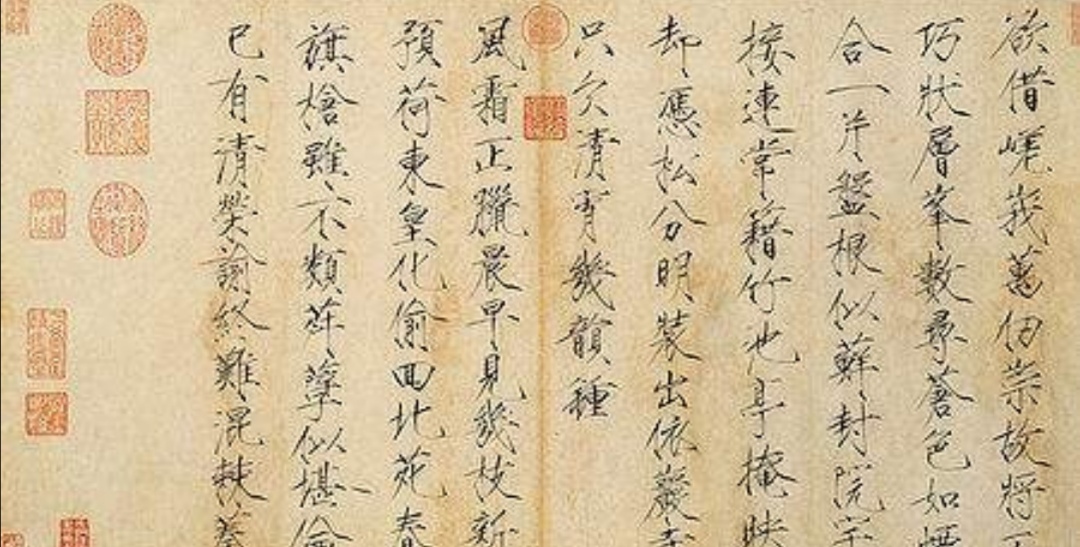 欲借嵯峩萬仞崇故將
巧狀層峯數尋蒼色如煙
合一片盤根似蘚封院宇
接連常藉竹池亭掩映
却憑松分明裝出依巖寺
只欠清宵幾韻鍾
風霜正臘晨早見幾枝新
預荷東皇化偷回北苑春
旗槍雖不類荈孽似堪倫
已有清榮諭終難混棘蓁